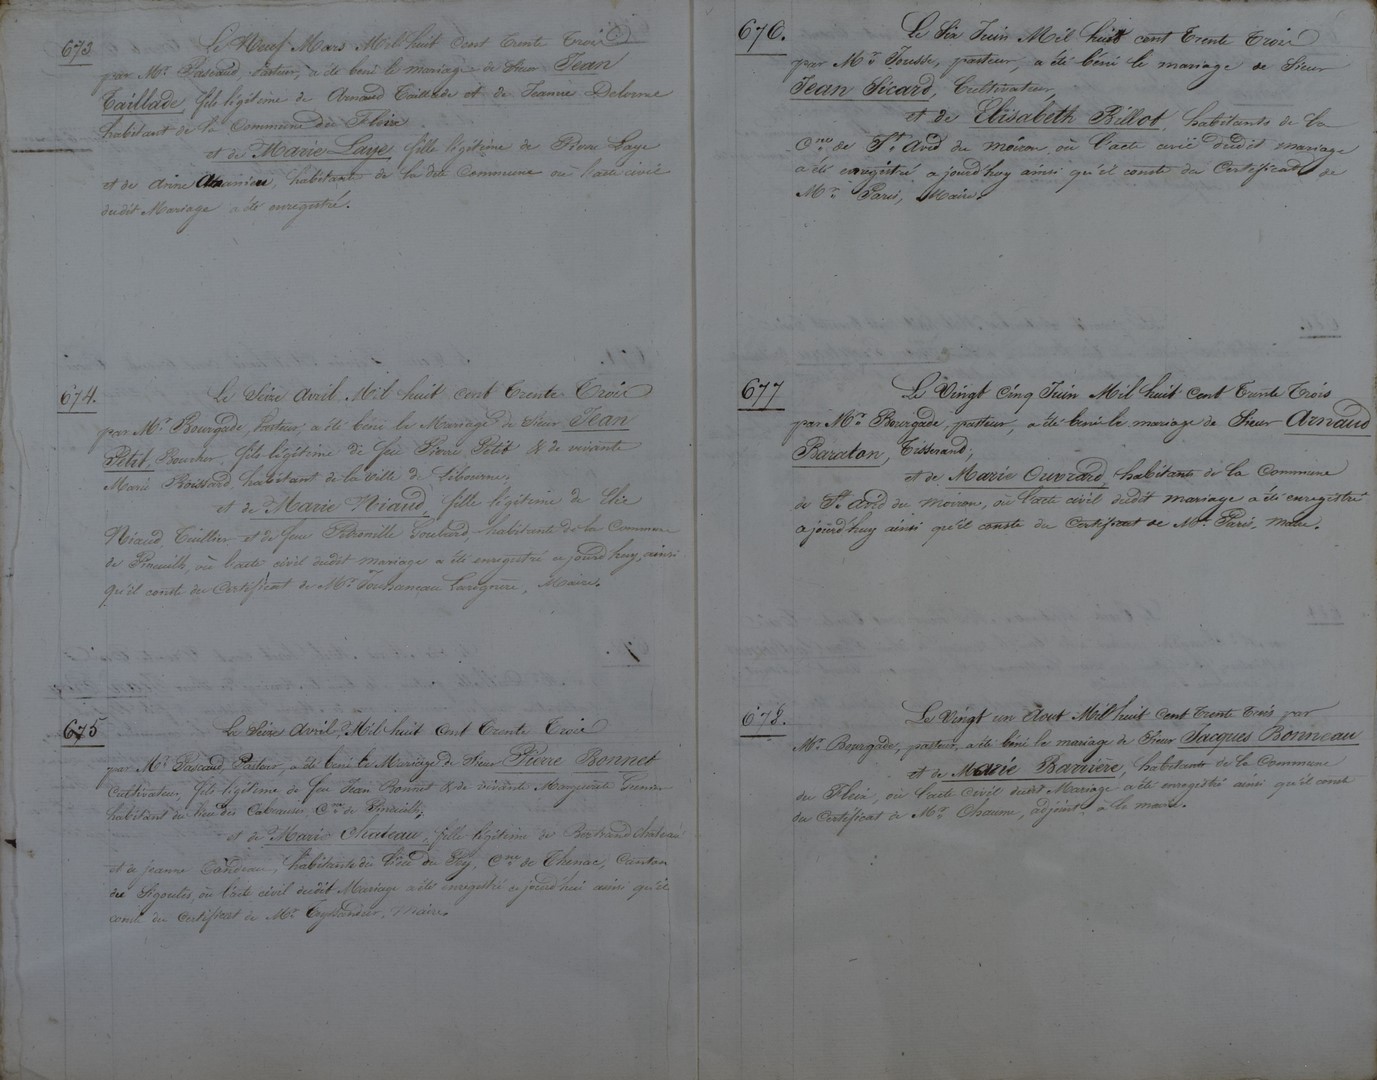 673
Le Neuf Mars Mil huit Cent Trente Trois
par Mr Pascaud, Pasteur, a été béni le mariage de Sieur Jean
Taillade, fils légitime de Arnaud Taillade et de Jeanne Delorme
habitant de la Commune du Fleix
et de Marie Laye, fille légitime de Pierre Laye
et de Anne, habitante de la dte Commune où l'acte civil
dudit Mariage a été enregistré.
674.
Le Seize Avril Mil huit cent Trente Trois
par Mr Bourgade, Pasteur, a été béni le Mariage de Sieur Jean
Petit, Boucher, fils légitime de feu Pierre Petit & de vivante
Marie Boissard, habitant de la Ville de Libourne,
et de Marie Niaud, fille légitime de Elie
Niaud, Tuillier et de feue Pétronille Goulard, habitante de la Commune
de Pineuilh, où l'acte civil dudit mariage a été enregistré ajourd'huy, ainsi
qu'il conste du Certificat de Mr Jouhaneau Laregnère, Maire.
675
Le Seize Avril, Mil huit Cent Trente Trois
par Mr Pascaud, Pasteur, a été béni le Mariage de Sieur Pierre Bonnet
Cultivateur, fils légitime de feu Jean Bonnet & de vivante Marguerite
habitant du lieu des Cne de Pineuilh,
et de Marie Chateau, fille légitime de Bertrand Chateau
et de jeanne, habitante du lieu du Fry, Cne de Thenac, Canton
de Sigoulès, où l'acte civil dudit Mariage a été enregistré ajourd'hui ainsi qu'il
conste du Certificat de Mr, Maire.
676.
Le Six Juin Mil huit cent Trente Trois
par Mr Jousse, pasteur, a été béni le mariage de Sieur
Jean Sicard, Cultivateur,
et de Elisabeth Billot, habitants de la
Cne de St Avid du moiron, où l'acte civil dudit mariage
a été enregistré ajourd'huy ainsi qu'il conste du Certificat de
Mr Paris, Maire.
677
Le Vingt cinq Juin Mil huit cent Trente Trois
par Mr Bourgade, pasteur, a été béni le mariage de Sieur Arnaud
Baraton, Tisserand,
et de Marie Ouvrard, habitants de la Commune
de St Avid du Moiron, où l'acte civil dudit mariage a été enregistré
ajourd'huy ainsi qu'il conste du Certificat de Mr Paris, maire.
678.
Le Vingt un Aout Mil huit Cent Trente Trois par
Mr Bourgade, pasteur, a été béni le mariage de Sieur Jacques Bonneau
et de Marie Barrière, habitants de la Commune
du Fleix, où l'acte Civil dudit Mariage a été enregistré ainsi qu'il conste
du Certificat de Mr Chaume, adjoint à la mairie.